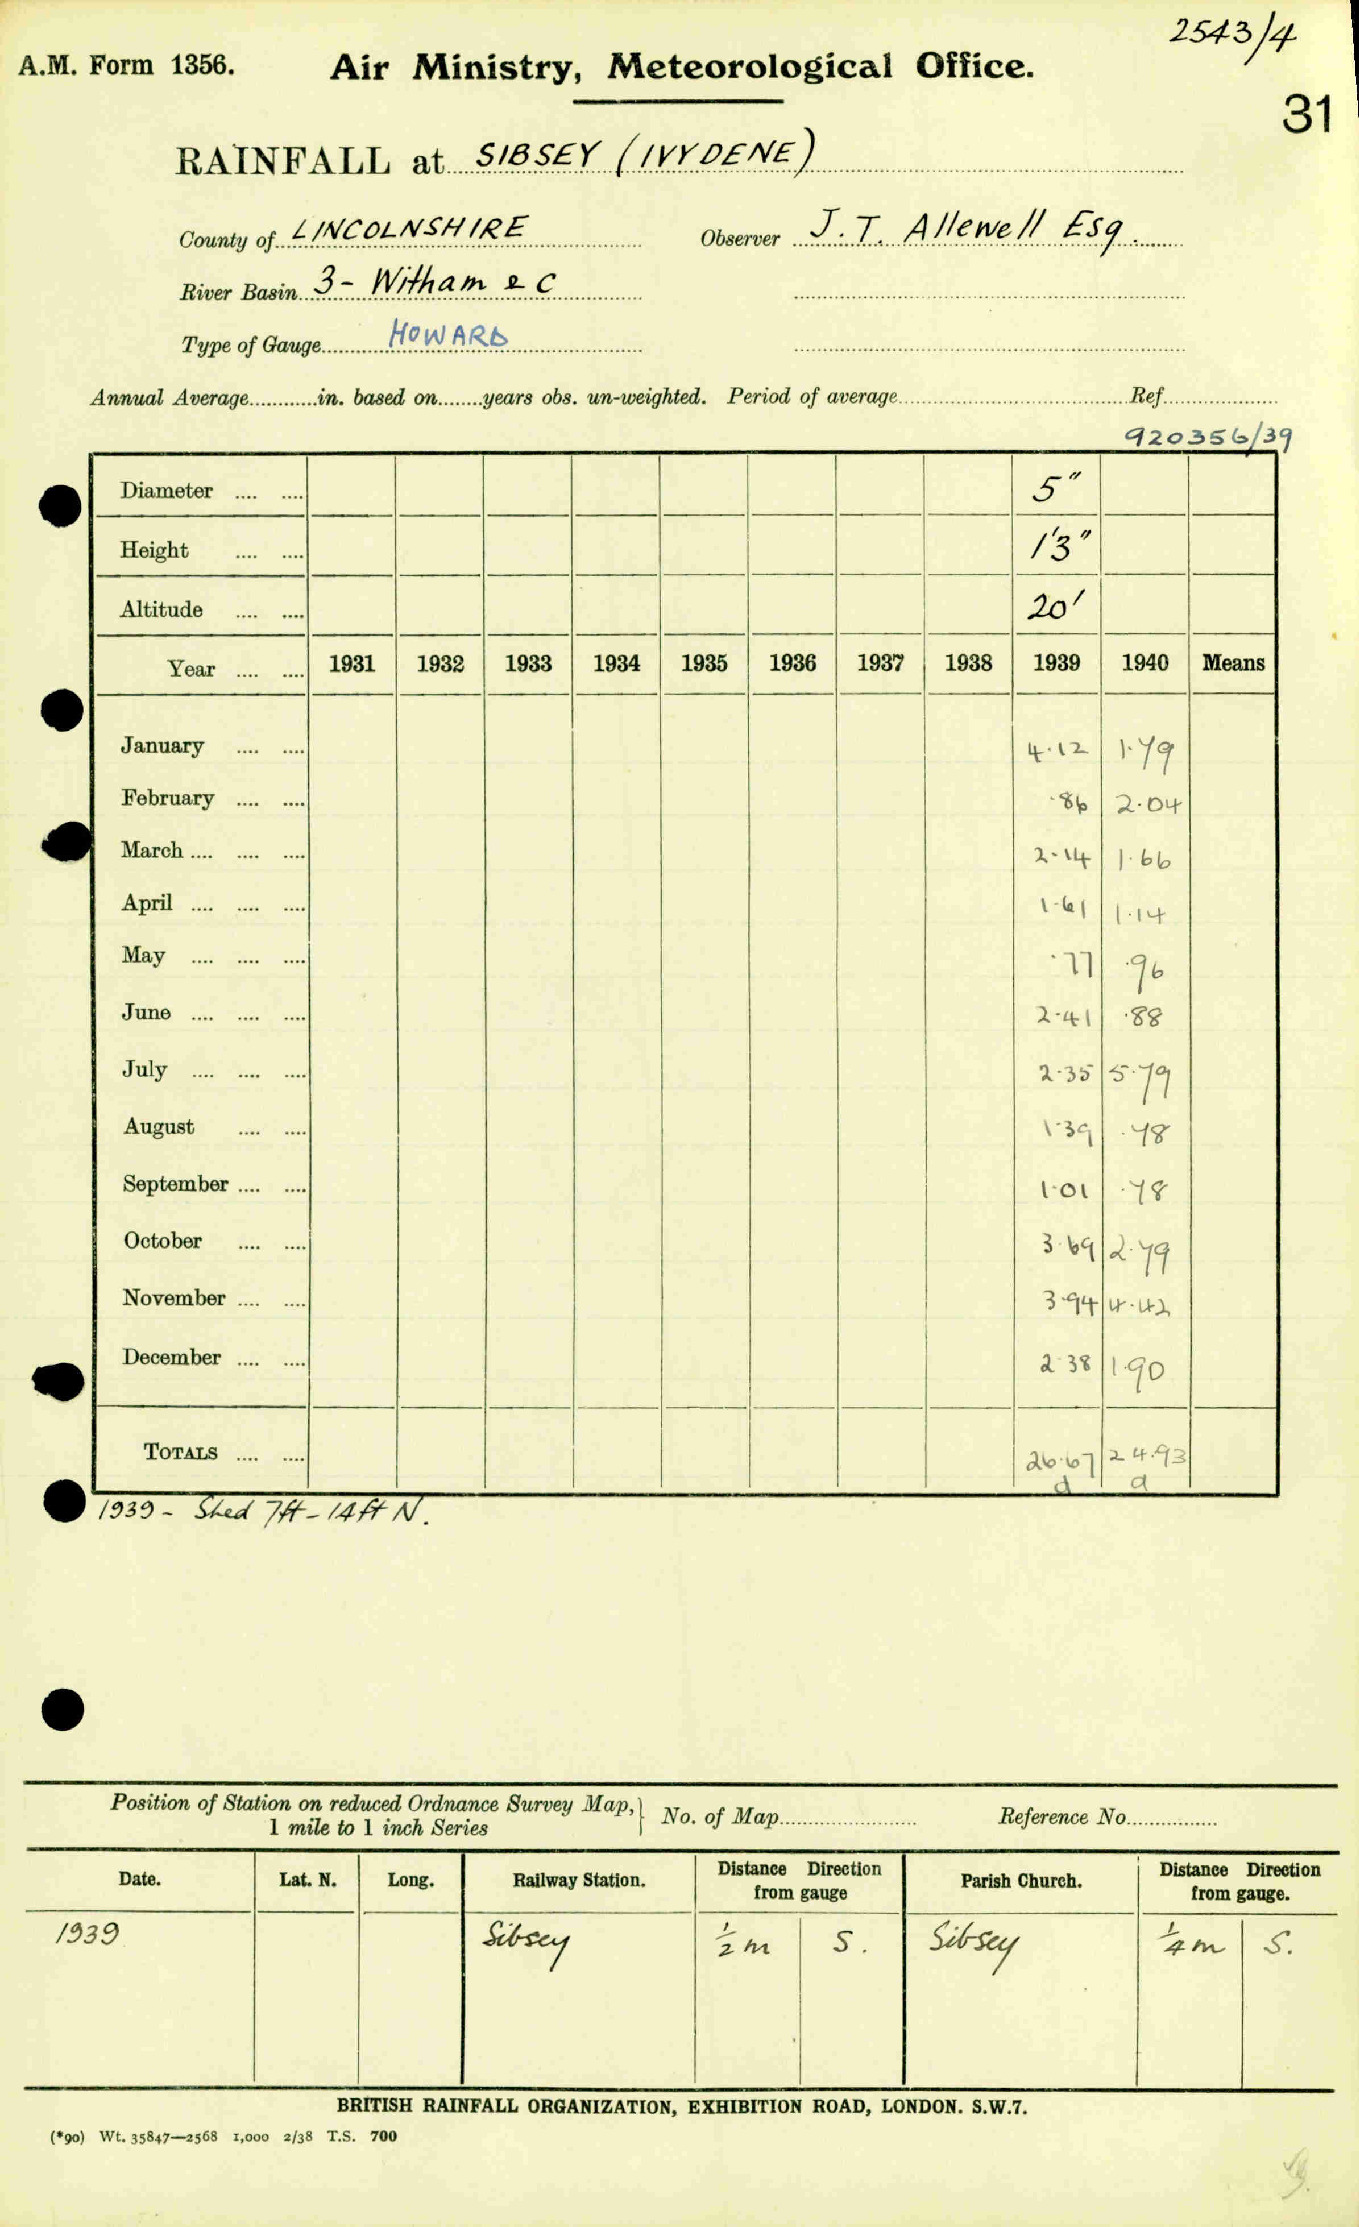 2543/4
A.M. Form 1356. Air Ministry, Meteorological Office.
31
RAINFALL at SIBSEY (IVYDENE)
County of LINCOLNSHIRE Observer J. T. Allewell Esq.
River Basin 3 - Witham & C
Type of Gauge HOWARD
Annual Average............in. based on........years obs. un-weighted. Period of average........Ref........
920356/39
Diameter .... .... 5"
Height .... .... 1'3"
Altitude .... .... 20'
Year .... .... 1931 1932 1933 1934 1935 1936 1937 1938 1939 1940 Means
January .... .... 4.12 1.79
February .... .... .86 2.04
March .... .... .... 2.14 1.66
April .... .... .... 1.61 1.14
May .... .... .... .77 .96
June .... .... .... 2.41 .88
July .... .... .... 2.35 5.79
August .... .... 1.39 .78
September .... .... 1.01 .78
October .... .... 3.69 2.79
November .... .... 3.94 4.42
December .... .... 2.38 1.90
TOTALS .... .... 26.67 24.93
d d
1939 - Shed 7ft - 14ft N.
Position of Station on reduced Ordnance Survey Map,} No. of Map........ Reference No........
1 mile to 1 inch Series
Date. Lat. N. Long. Railway Station. Distance Direction from gauge Parish Church. Distance Direction from gauge.
1939 Sibsey 1/2 m S. Sibsey 1/4 m S.
BRITISH RAINFALL ORGANIZATION, EXHIBITION ROAD, LONDON. S.W.7.
(*90) Wt. 35847—2568 1,000 2/38 T.S. 700